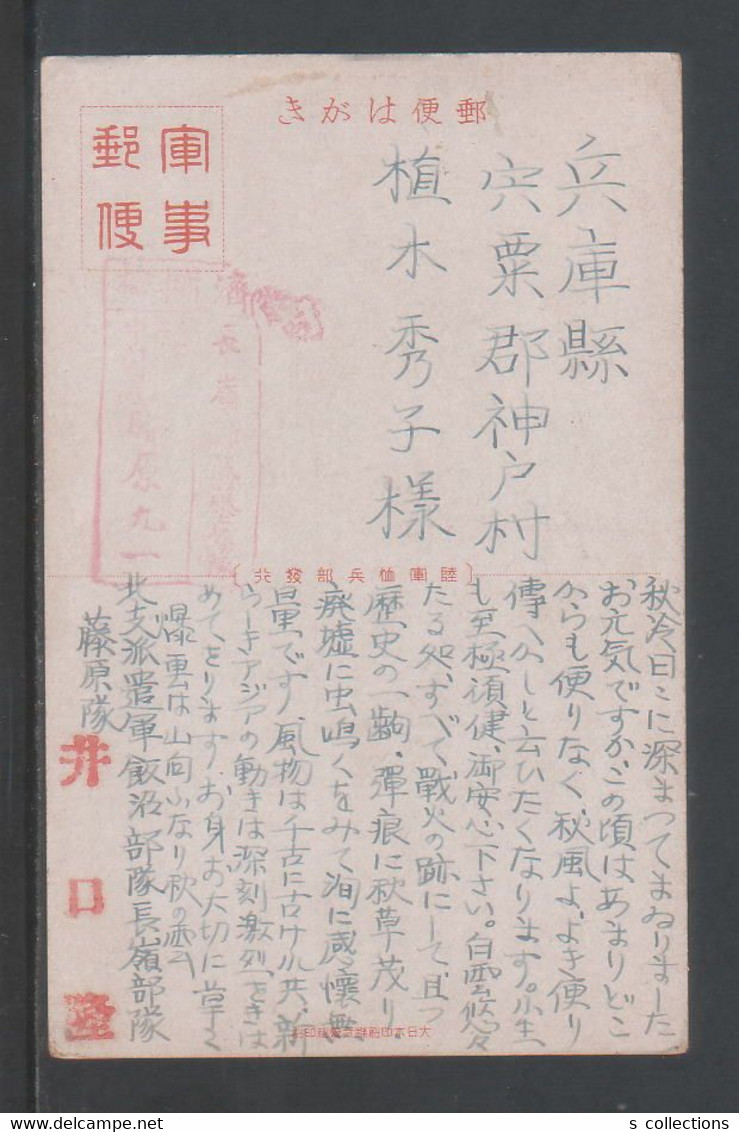 郵便はがき
軍事
郵便
兵庫縣
宍粟郡神戸村
植木秀子様
長嶺
原九一
陸軍恤兵部發行
秋冷日々に深まつてまゐりました
お元気ですか、この頃はあまりどこ
からも便りなく、秋風よ、よき便り
傳へかしと云ひたくなります。小生
も至極頑健、御安心下さい。白雲悠々
たる処、すべて戰火の跡にして且つ
歴史の一齣、彈痕に秋草茂り、
廃墟に虫鳴くをみて洵に感懷無
量です、風物は千古に古けれ共、新
らしきアジアの動きは深刻激烈をきは
めてをります、お身お大切に 草々
爆更は山向ふなり秋の雲
北支派遣軍飯沼部隊長嶺部隊
藤原隊
井口
s collections